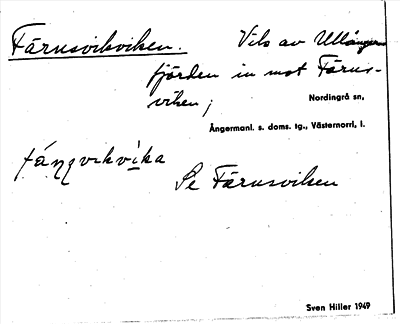 Färusvikviken. Vik av Ullånger-
fjärden in mot Färus-
viken;
Nordingrå sn,
Ångermanl. s. doms. tg., Västernorrl. l.
Se Färusviken
Sven Hiller 1949